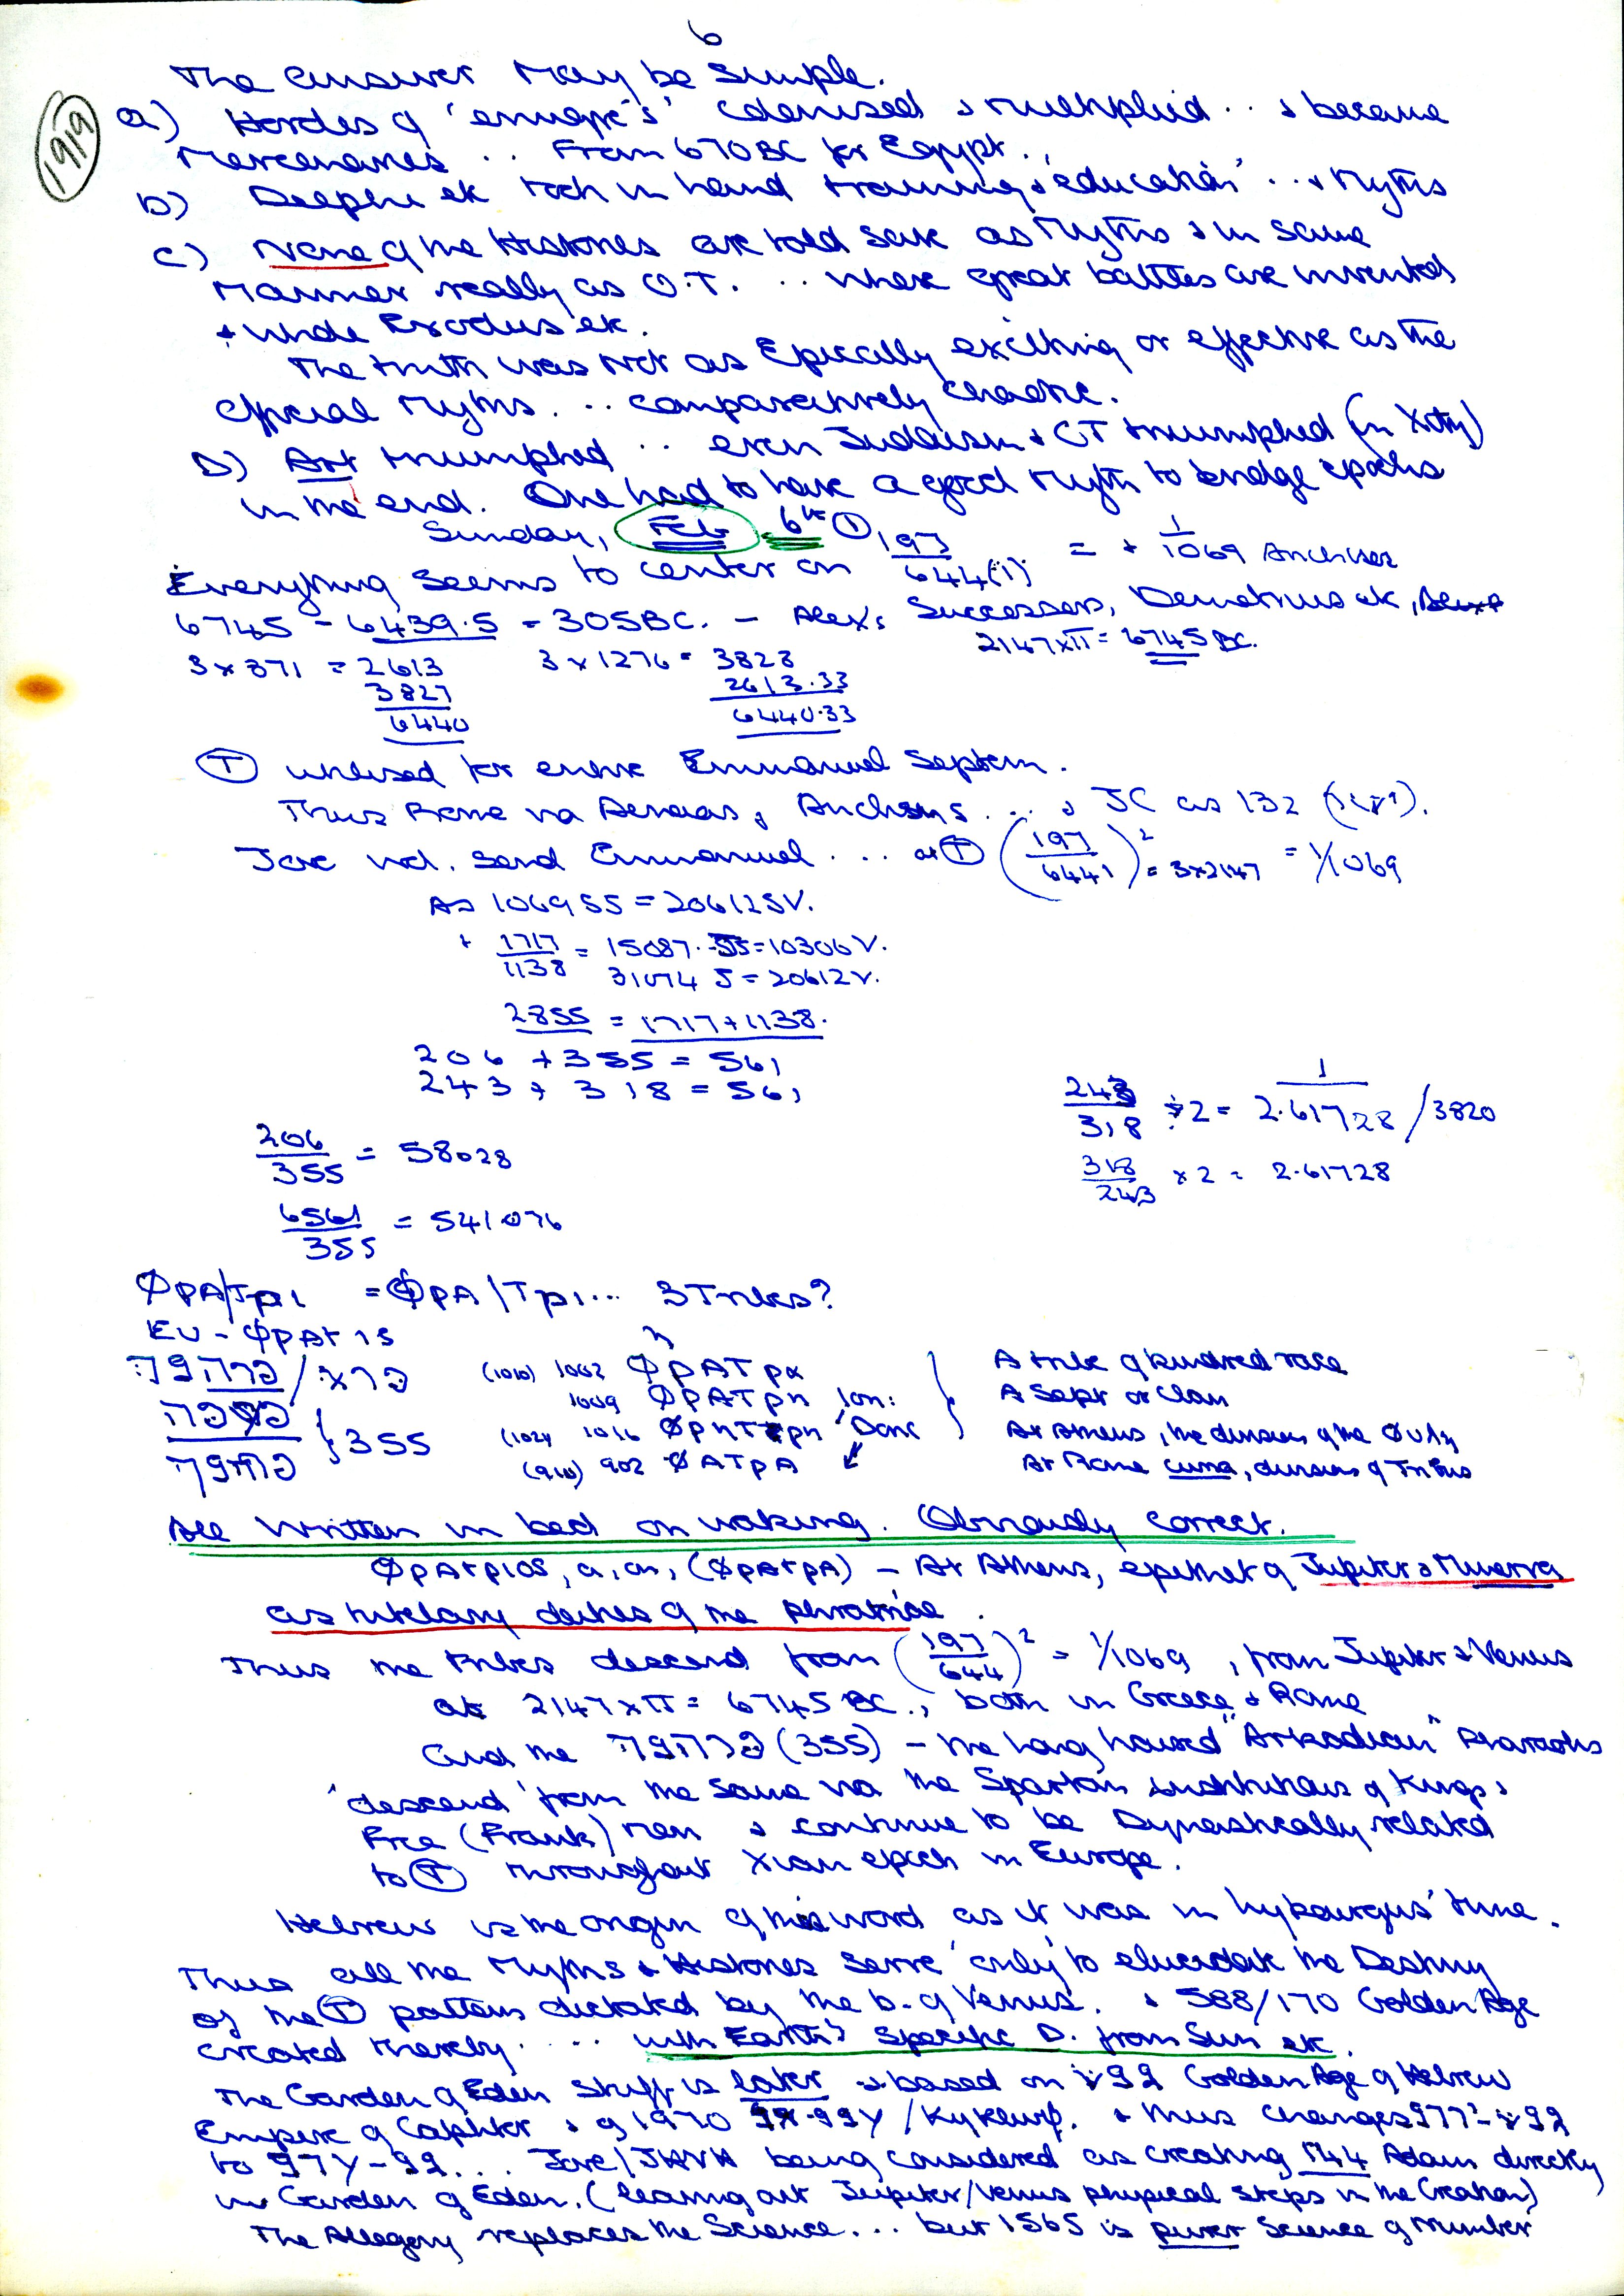 6
1919
The answer may be simple.
a) Hordes of 'emigre's' colonised & multiplied .. & became
Mercenaries .. From 670 BC for Egypt ..
b) Delphi etc took in hand training & 'education' .. & Myths
c) None of the Histories are told save as Myths & in same
Manner really as O.T. .. where great battles are invented
& whole Exodus etc.
The truth was not as Epically exciting or effective as the
official myths ... comparatively chaotic.
D) Art triumphed .. even Judaism & OT triumphed (in Xtity)
in the end. One had to have a good Myth to bridge epochs
Sunday, Feb 6th
Everything seems to center on Ⓣ 197/644(1) = + 1/1069 Anchises
6745 - 6439.5 = 305BC. - Alex, Successors, Demetrius etc,
2147 x π = 6745 BC.
3 x 871 = 2613 3 x 1276 = 3828
3827 2613.33
6440 6440.33
Ⓣ utilised for entire Emmanuel Septem.
Thus Rome via Aeneas, Anchises ... & JC as 132
Jove will send Emmanuel ... at Ⓣ (197/6441)² = 3x2147 = 1/1069
As 1069 SS = 20612 SV.
+ 1717/1138 = 15087. SS = 10306 V.
31074 S = 20612 V.
2855 = 1717 + 1138.
206 + 355 = 561
243 + 318 = 561
243/318 ÷ 2 = 1/2.61728 / 3820
206/355 = 58028
318/243 x 2 = 2.61728
6561/355 = 541076
ΦρΑ/Τρι = ΦρΑ/Τρι... 3 Tribes?
EU - ΦρΑτ is
(1010) 1002 ΦρΑΤρα A tribe of kindred race
1009 ΦρΑΤρη Ion: A Sept or Clan
355 (1024 1016 Doric At Athens, the division of the Φυλη
(910) 902 ΦΑΤρΑ At Rome curia, division of Tribus
All written in bed on waking. Obviously correct.
ΦρΑτριος, α, ον, (ΦρΑτρΑ) - At Athens, epithet of Jupiter & Minerva
as tutelary deities of the phratriae.
Thus the tribes descend from (197/644)² = 1/1069, from Jupiter & Venus
at 2147 x π = 6745 BC., both in Greece & Rome
And the (355) - the long haired "Arkadian" Pharaohs
'descend' from the same via the Spartan institutions of Kings &
Free (Frank) men & continue to be Dynastically related
to Ⓣ throughout Xian epoch in Europe.
Hebrew is the origin of this word as it was in Lykourgus' time.
Thus all the Myths & Histories serve 'only' to elucidate the Destiny
of the Ⓣ pattern dictated by the b. of Venus. & 588/170 Golden Age
created thereby .... with Earth's specific D. from Sun etc.
The Garden of Eden stuff is later & based on Golden Age of Hebrew
Empire of Caphtor & of 1970 & thus changes
to ... Jove/JHVH being considered as creating 144 Adam directly
in Garden of Eden. (leaving out Jupiter/Venus physical steps in the Creation)
The Allegory replaces the Science... but 1565 is purer Science of Number